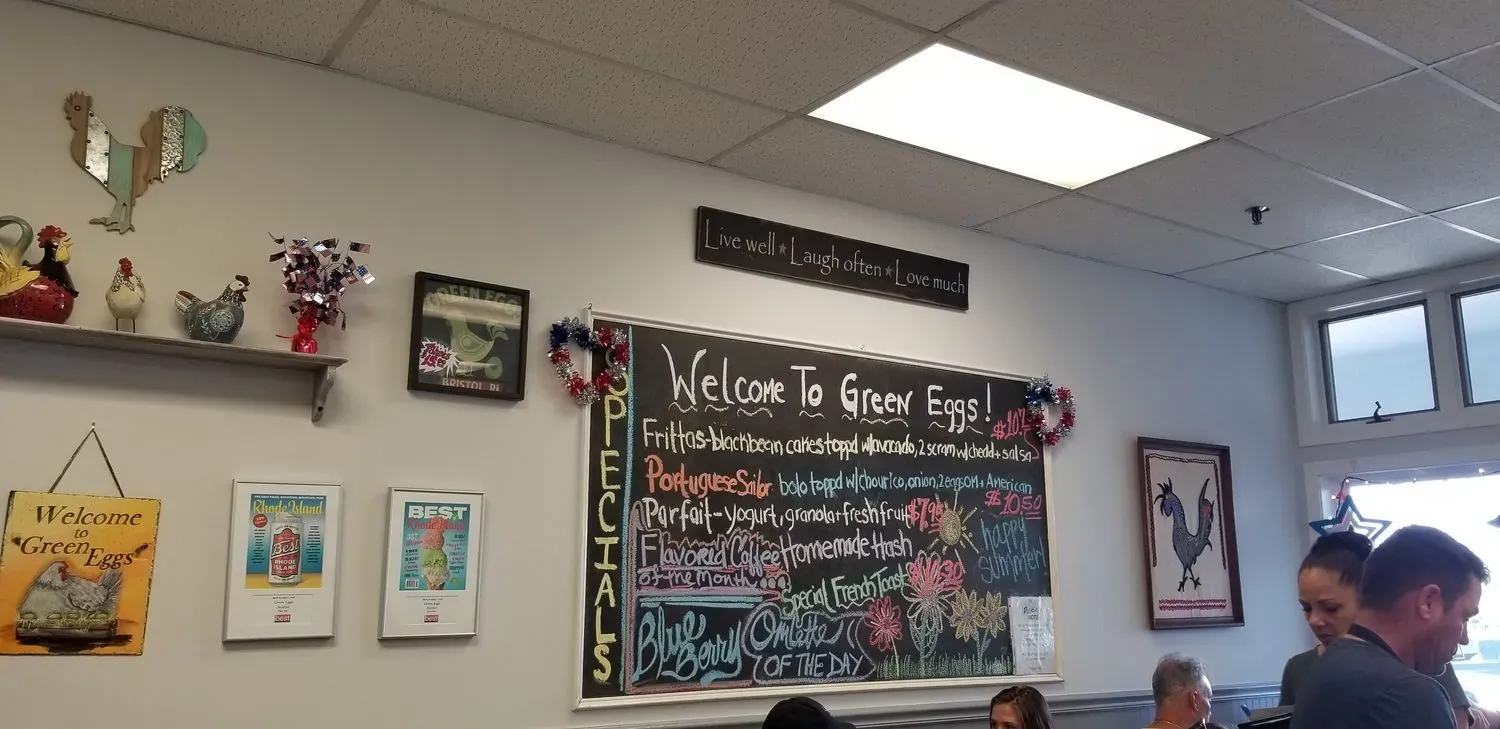 Live well ★ Laugh often ★ Love much
GREEN EGGS
BRISTOL RI
Welcome
to
Green Eggs
Rhode Island
Best
RHODE
ISLAND
best
BEST
Rhode Island
best
SPECIALS
Welcome To Green Eggs!
Frittas-blackbean cakes toppd w/avacado, 2 scram w/chedd + salsa
Portuguese Sailor bolo toppd w/chourico, onion, 2 eggs om + American
$10.50
Parfait - yogurt, granola + fresh fruit $7.95
Flavored Coffee
of the Month
Homemade Hash
Special French Toast
happy
summer
Blue Berry
Omlette
OF THE DAY